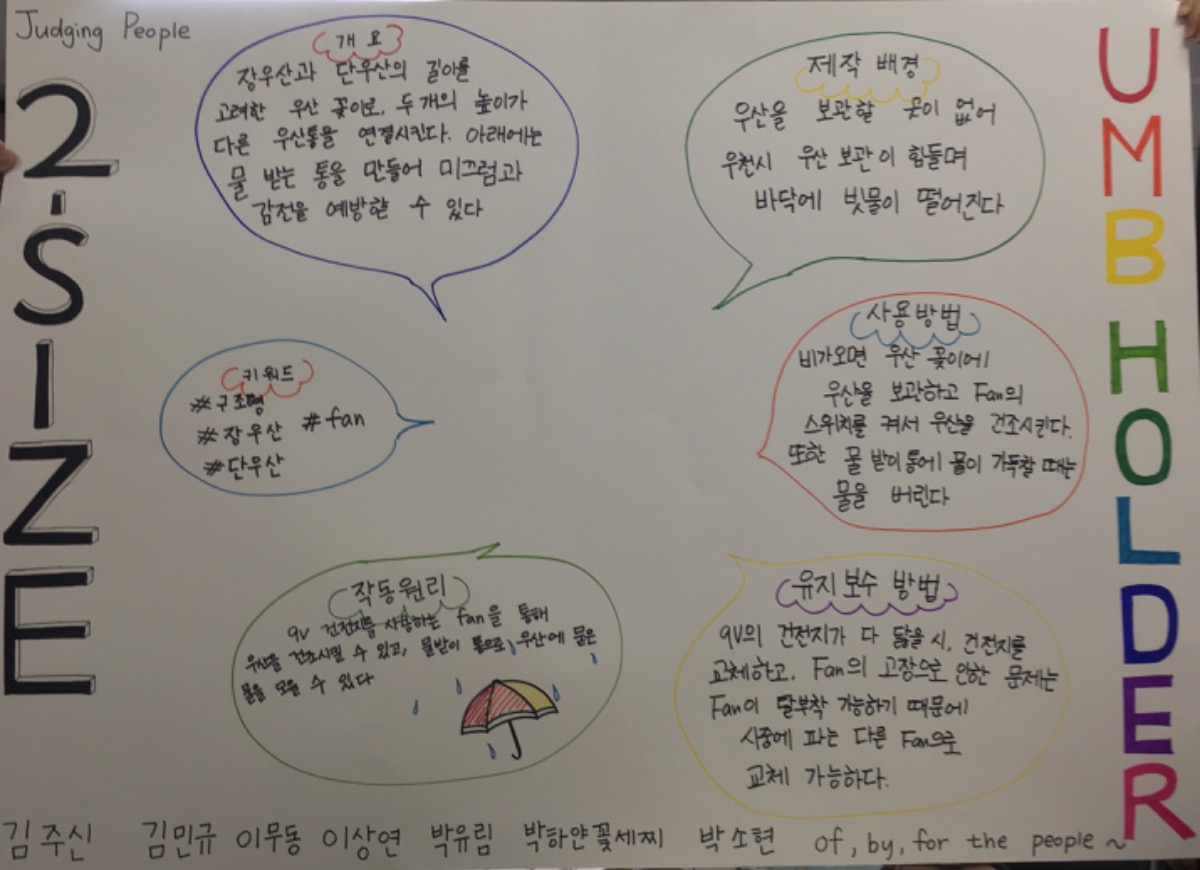 Judging People
2-SIZE
UMB HOLDER
개요
장우산과 단우산의 길이를
고려한 우산 꽂이로, 두 개의 높이가
다른 우산통을 연결시킨다. 아래에는
물 받는 통을 만들어 미끄럼과
감전을 예방할 수 있다
제작 배경
우산을 보관할 곳이 없어
우천시 우산 보관이 힘들며
바닥에 빗물이 떨어진다
키워드
#구조명
#장우산 #fan
#단우산
사용방법
비가오면 우산 꽂이에
우산을 보관하고 Fan의
스위치를 켜서 우산을 건조시킨다.
또한 물 받이 통에 물이 가득찰 때는
물을 버린다
작동원리
9V 건전지를 사용하는 fan을 통해
우산을 건조시킬 수 있고, 물받이 통으로 우산에 묻은
물을 모을 수 있다
유지 보수 방법
9V의 건전지가 다 닳을 시, 건전지를
교체하고. Fan의 고장으로 인한 문제는
Fan이 탈부착 가능하기 때문에
시중에 파는 다른 Fan으로
교체 가능하다.
김주신 김민규 이무동 이상연 박유림 박하얀꽃세찌 박소현 of, by, for the people ~